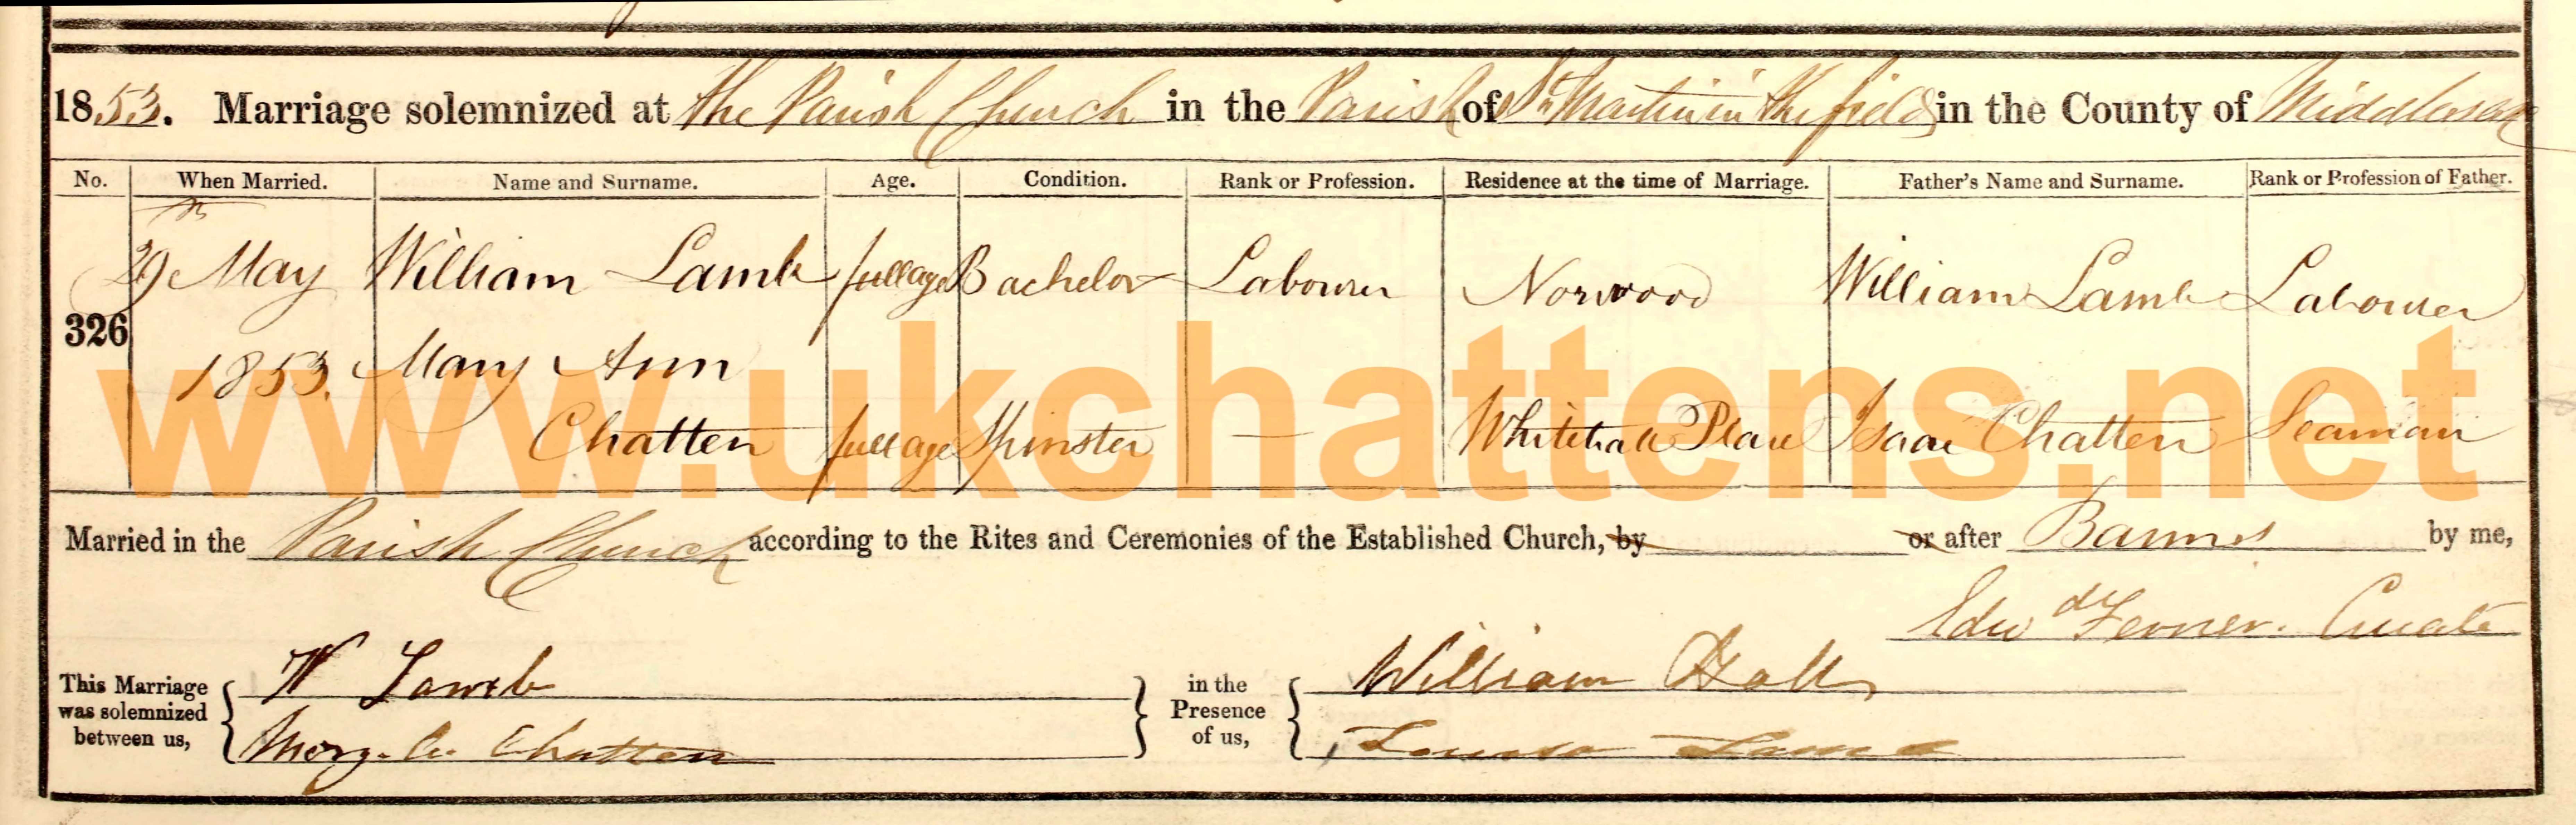 1853. Marriage solemnized at the Parish Church in the Parish of St Martin in the fields in the County of Middlesex
No. When Married. Name and Surname. Age. Condition. Rank or Profession. Residence at the time of Marriage. Father's Name and Surname. Rank or Profession of Father.
29 May William Lamb full age Bachelor Labourer Norwood William Lamb Labourer
326
1853. Mary Ann
Chatten full age Spinster — Whitehall Place Isaac Chatten Seaman
www.ukchattens.net
Married in the Parish Church according to the Rites and Ceremonies of the Established Church, by or after Banns by me,
Edwd Curate
This Marriage was solemnized between us, W Lamb in the Presence of us, William Hall
Mary. A. Chatten Louisa Lamb